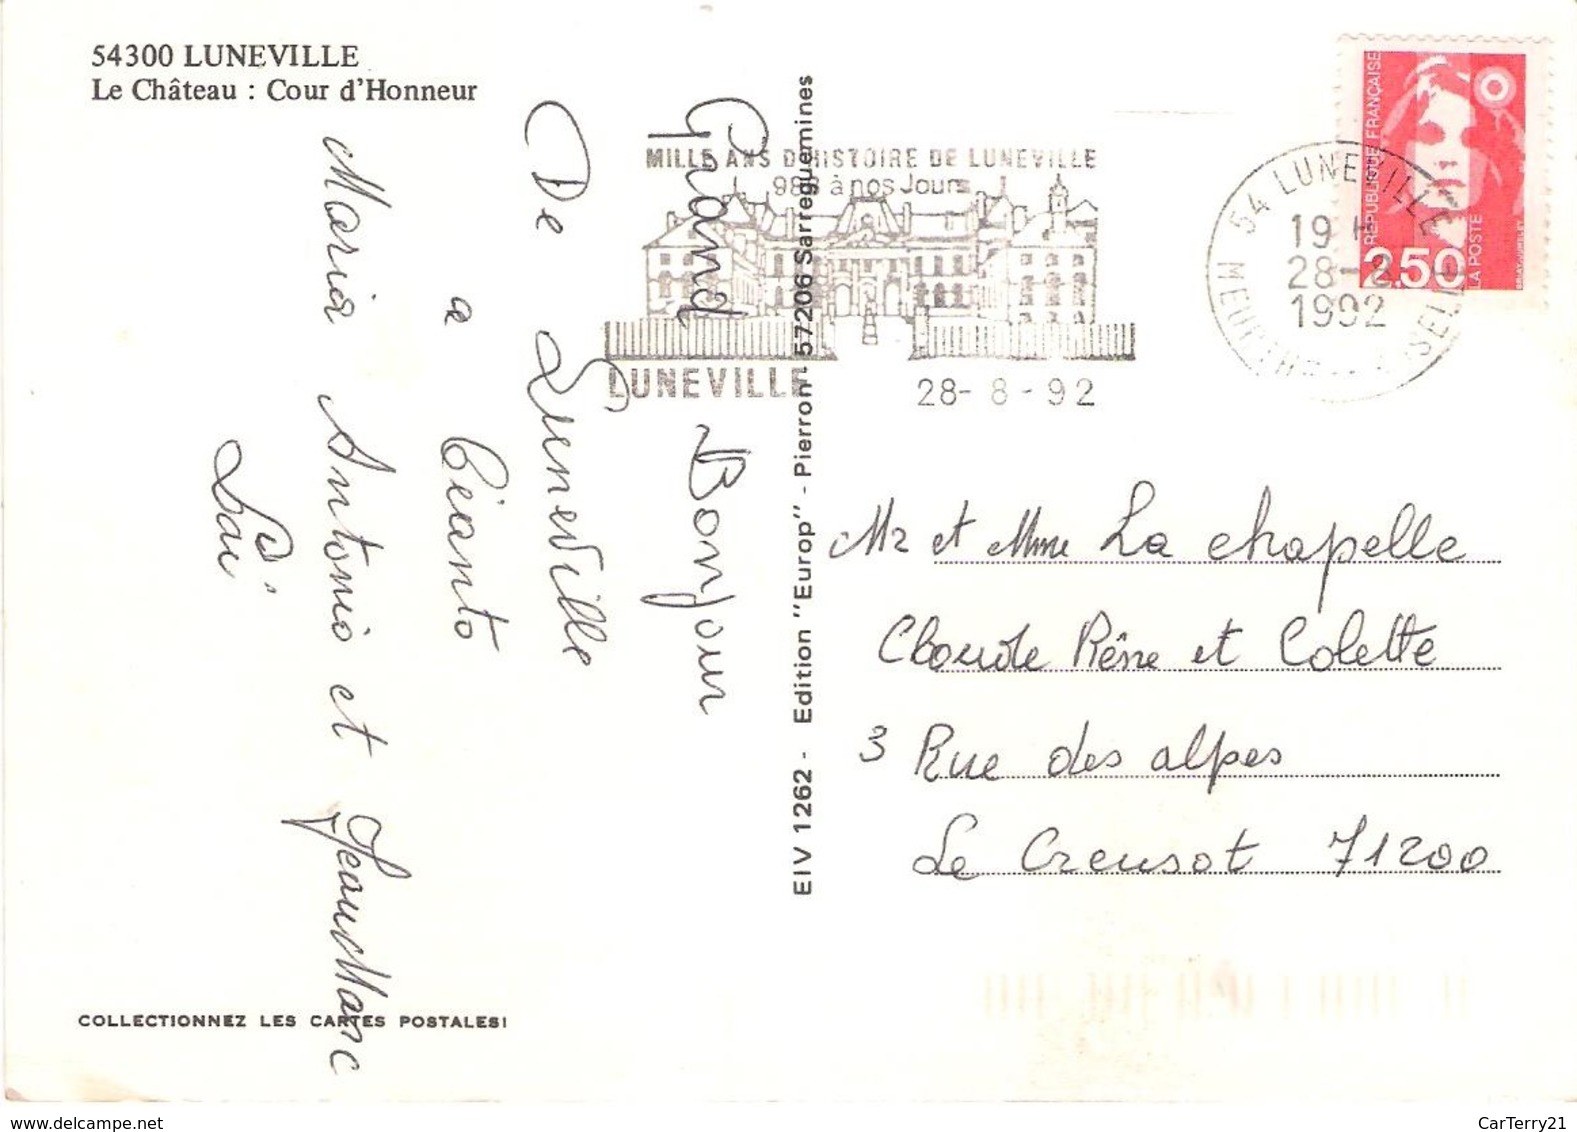 54300 LUNEVILLE
Le Château : Cour d'Honneur
Grand Bonjour
De Luneville
a
Maria Antonio et Jean Marc
COLLECTIONNEZ LES CARTES POSTALES!
EIV 1262 - Edition "Europ" - Pierron - 57206 Sarreguemines
MILLE ANS D'HISTOIRE DE LUNEVILLE
988 à nos Jours
LUNEVILLE 28-8-92
54 LUNEVILLE
19 H
28-8
1992
REPUBLIQUE FRANÇAISE
2,50
LA POSTE
Mr et Mme La chapelle
Claude Rêne et Colette
3 Rue des alpes
Le Creusot 71200
www.delcampe.net
CarTerry21